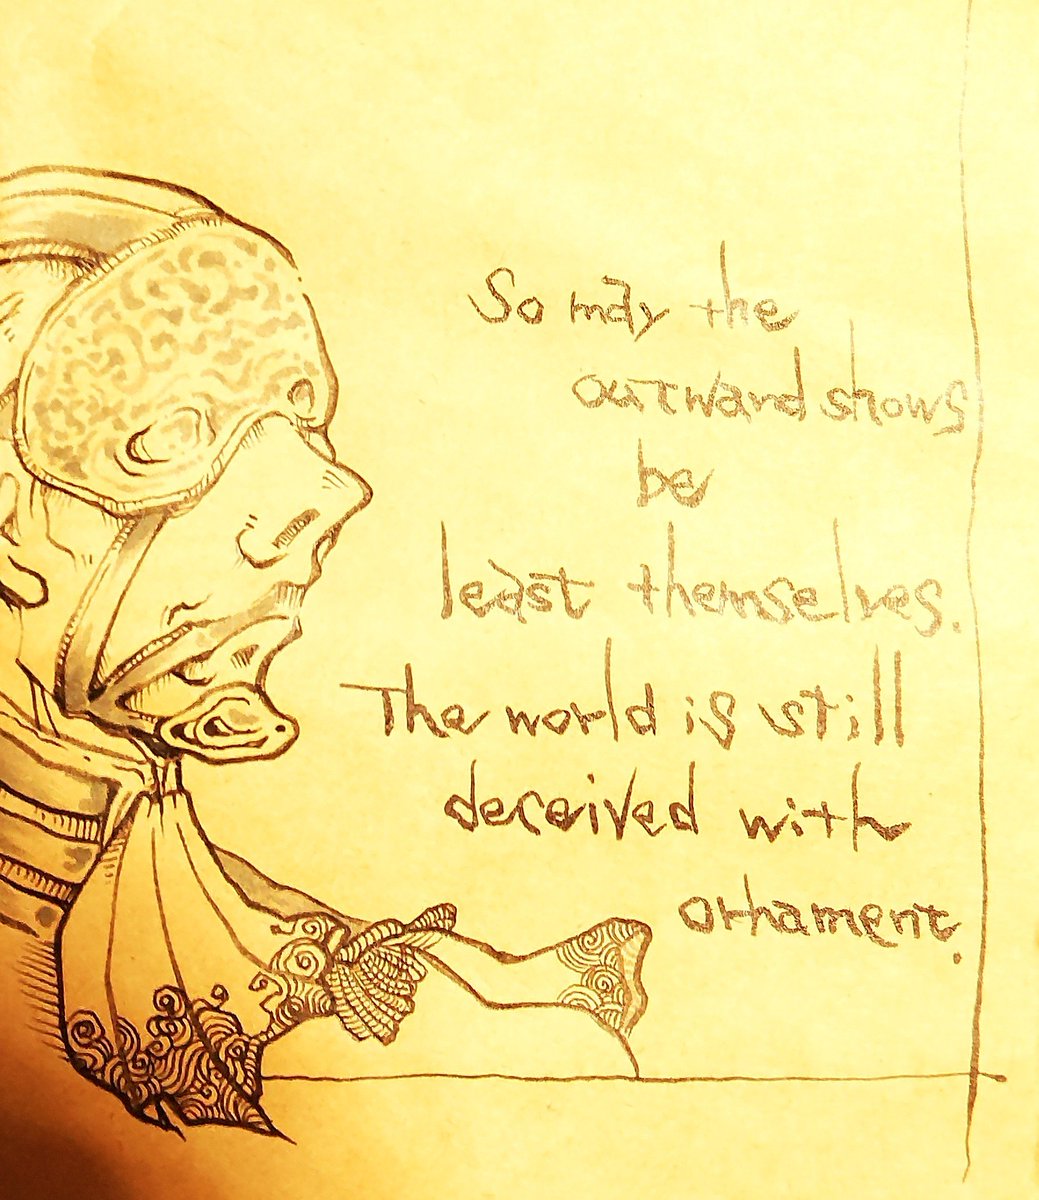 So may the
outward shows
be
least themselves.
The world is still
deceived with
ornament.